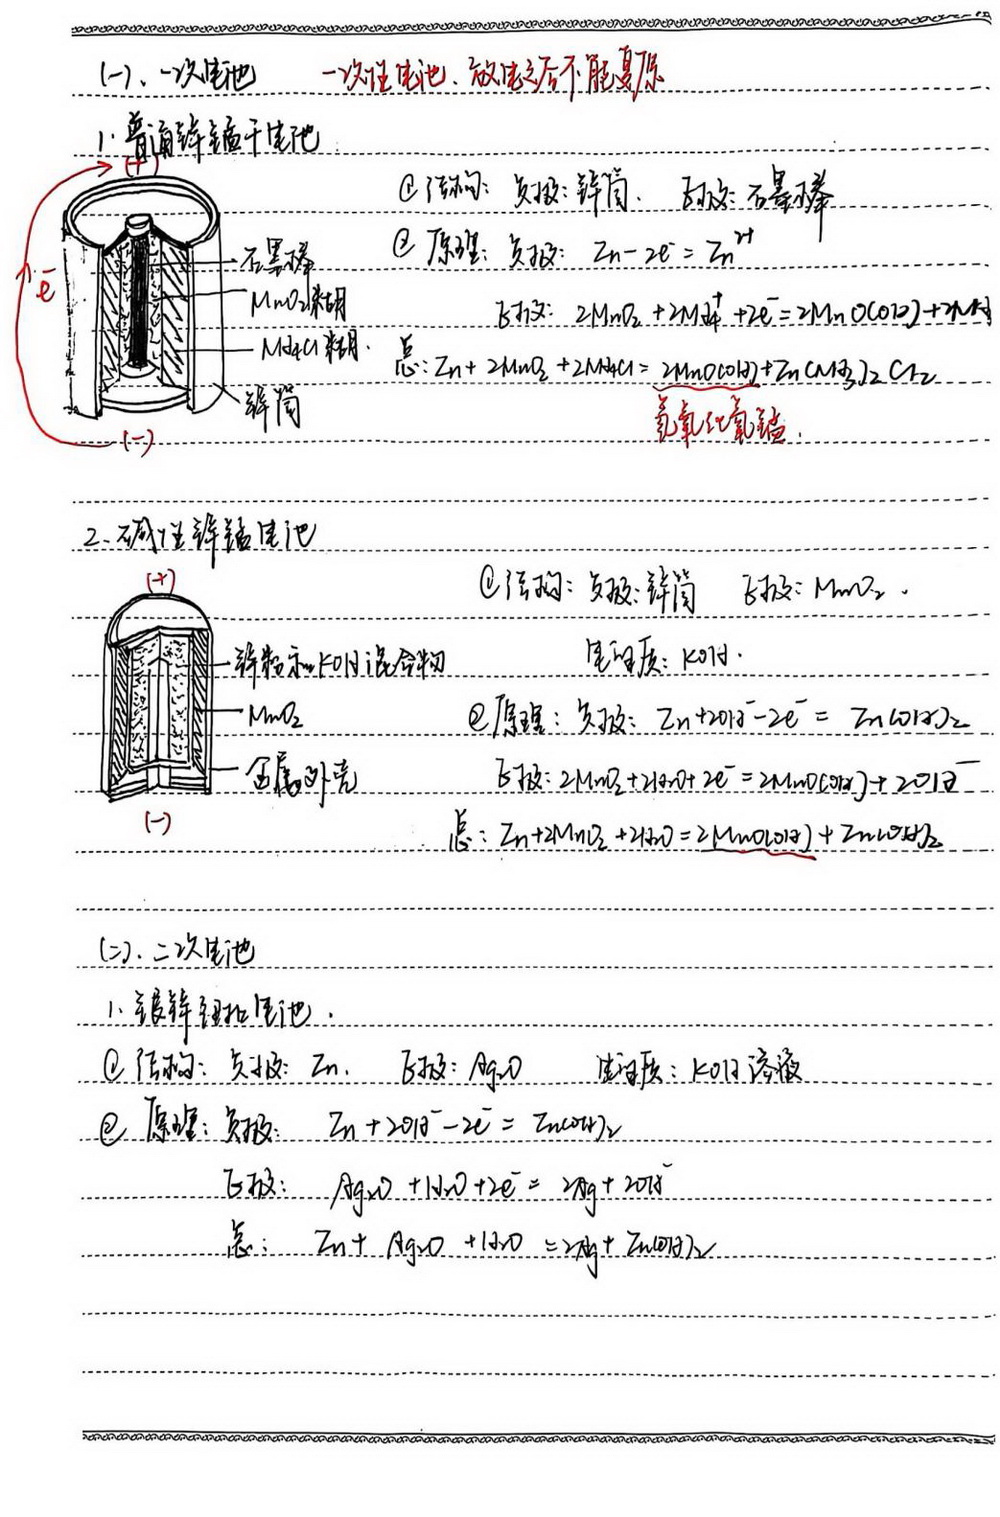 (一)、一次电池 一次性电池、放电之后不能复原
1. 普通锌锰干电池
(+)
① 结构: 负极: 锌筒. 正极: 石墨棒
② 原理: 负极: Zn-2e⁻=Zn²⁺
石墨棒
e⁻
MnO₂糊
正极: 2MnO₂+2NH₄⁺+2e⁻=2MnO(OH)+2NH₃
NH₄Cl糊.
总: Zn+2MnO₂+2NH₄Cl=2MnO(OH)+Zn(NH₃)₂Cl₂
锌筒
氢氧化氧锰.
(-)
2. 碱性锌锰电池
(+)
① 结构: 负极: 锌筒 正极: MnO₂.
锌粉和KOH混合物
电解质: KOH.
MnO₂
② 原理: 负极: Zn+2OH⁻-2e⁻=Zn(OH)₂
金属外壳
正极: 2MnO₂+2H₂O+2e⁻=2MnO(OH)+2OH⁻
(-)
总: Zn+2MnO₂+2H₂O=2MnO(OH)+Zn(OH)₂
(二)、二次电池
1. 银锌钮扣电池.
① 结构: 负极: Zn. 正极: Ag₂O 电解质: KOH溶液
② 原理: 负极: Zn+2OH⁻-2e⁻=Zn(OH)₂
正极: Ag₂O+H₂O+2e⁻=2Ag+2OH⁻
总: Zn+Ag₂O+H₂O=2Ag+Zn(OH)₂